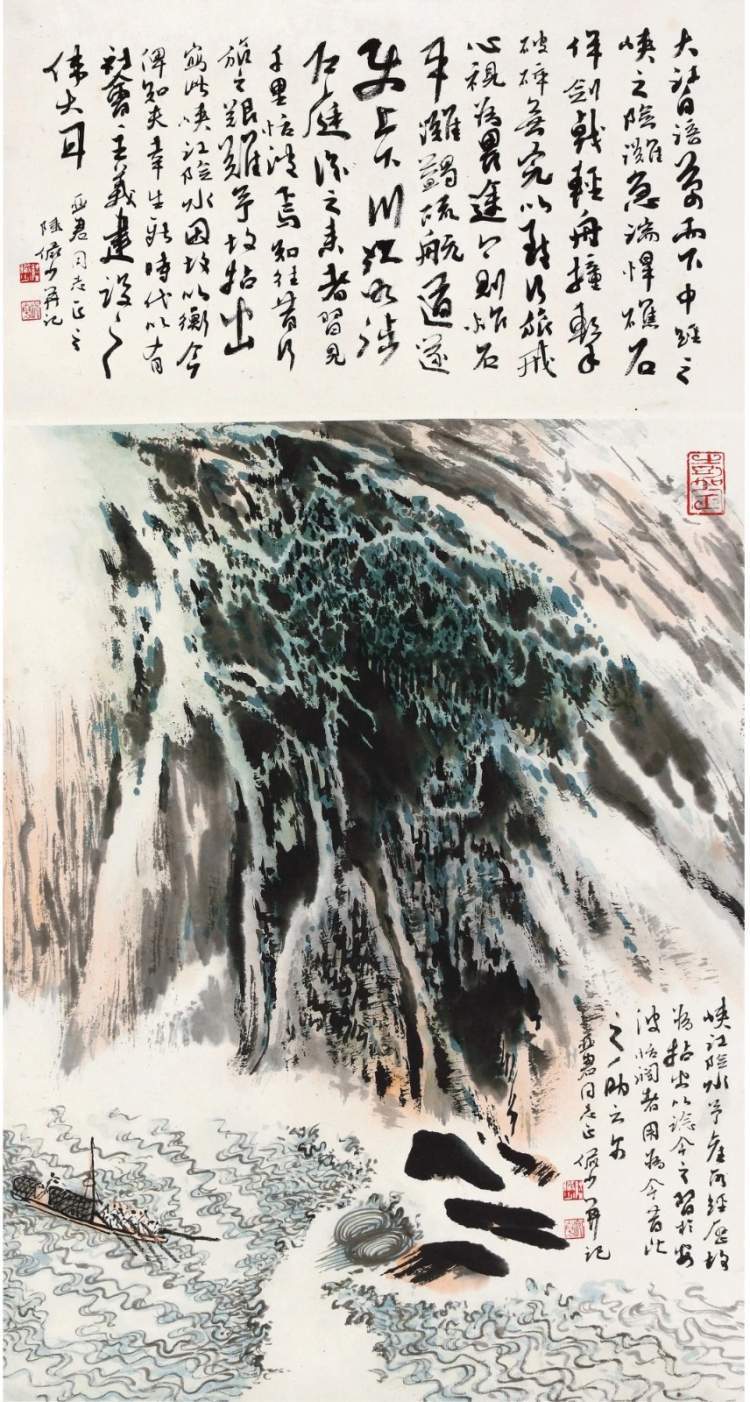 大江自而下中經三
峽之險灘急湍悍礁石
侔劍戟輕舟撞擊
破碎無完以致行旅戒
心視為畏途今則炸石
平灘疏航道遂
使上下川江如涉
戶庭後之來者習見
千里恬波焉知往昔行
旅之艱難予故拈出
寫此峽江險水以衡今
俾知夫幸生新時代以有
社會主義建設之
偉大耳
亚君同志正之
陸儼少并記
峽江險水予昔所經歷故
為拈出以諗今之習於安
波恬瀾者用為今昔比
之一助云爾
亚君同志正 儼少并記